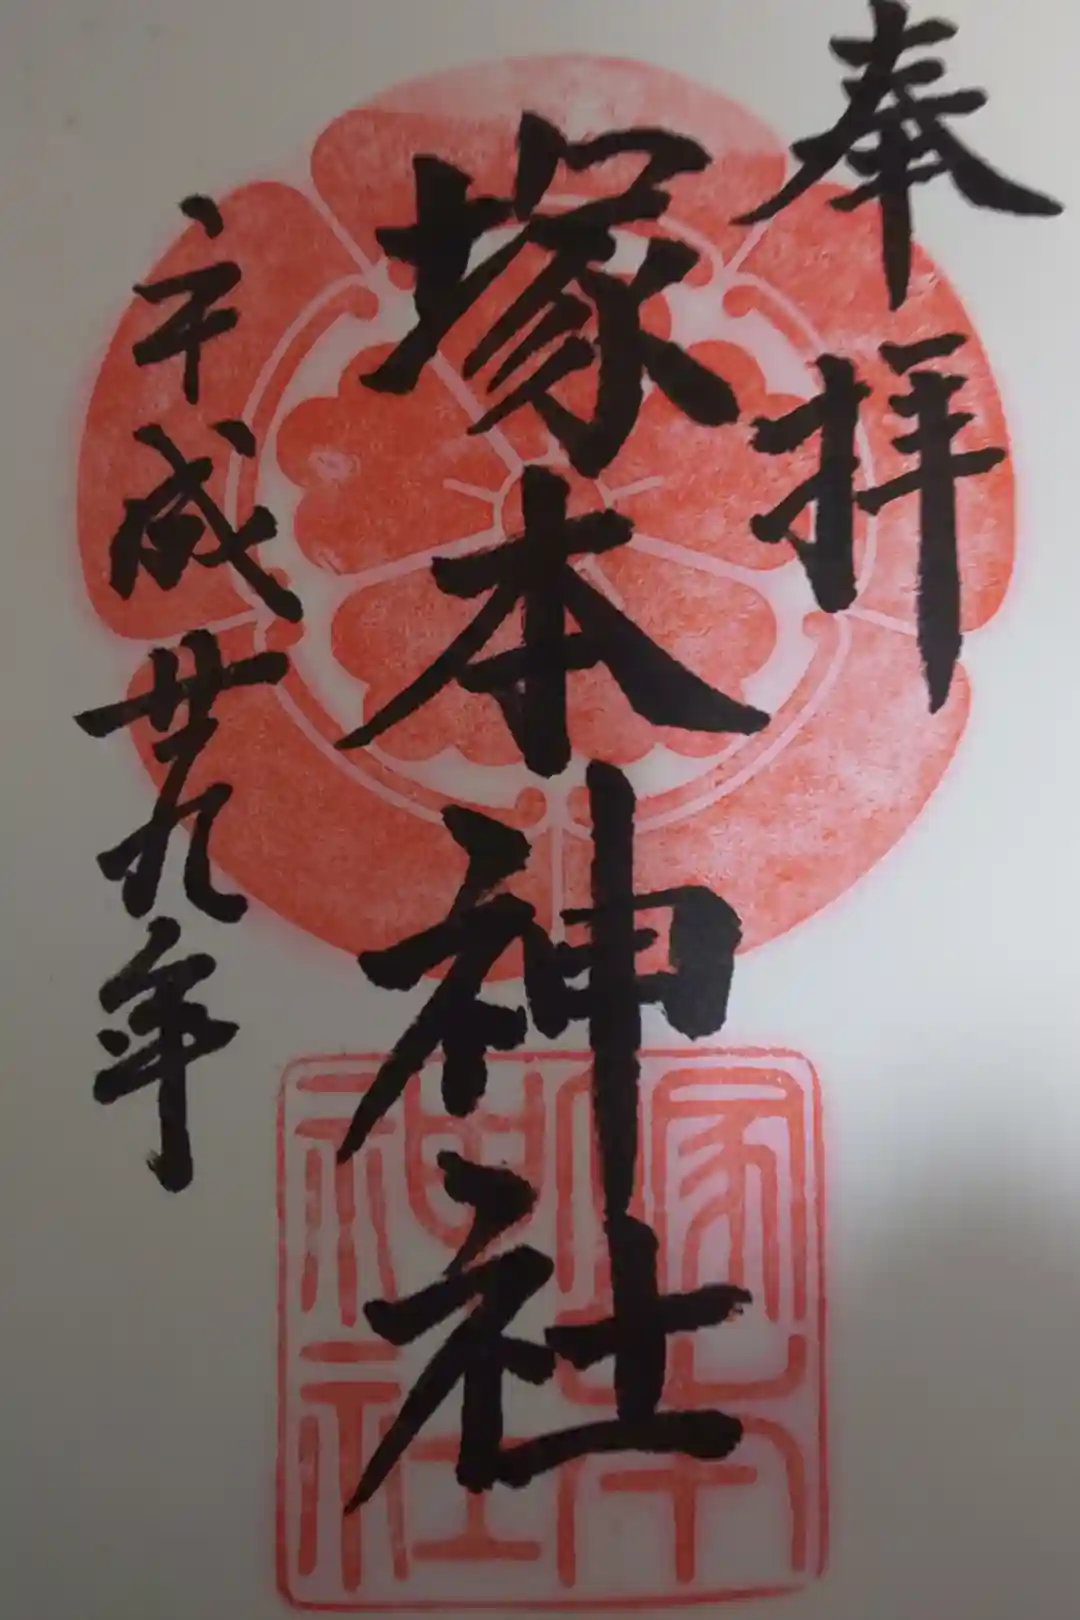 奉拝
塚本神社
平成廿九年
塚本
神社